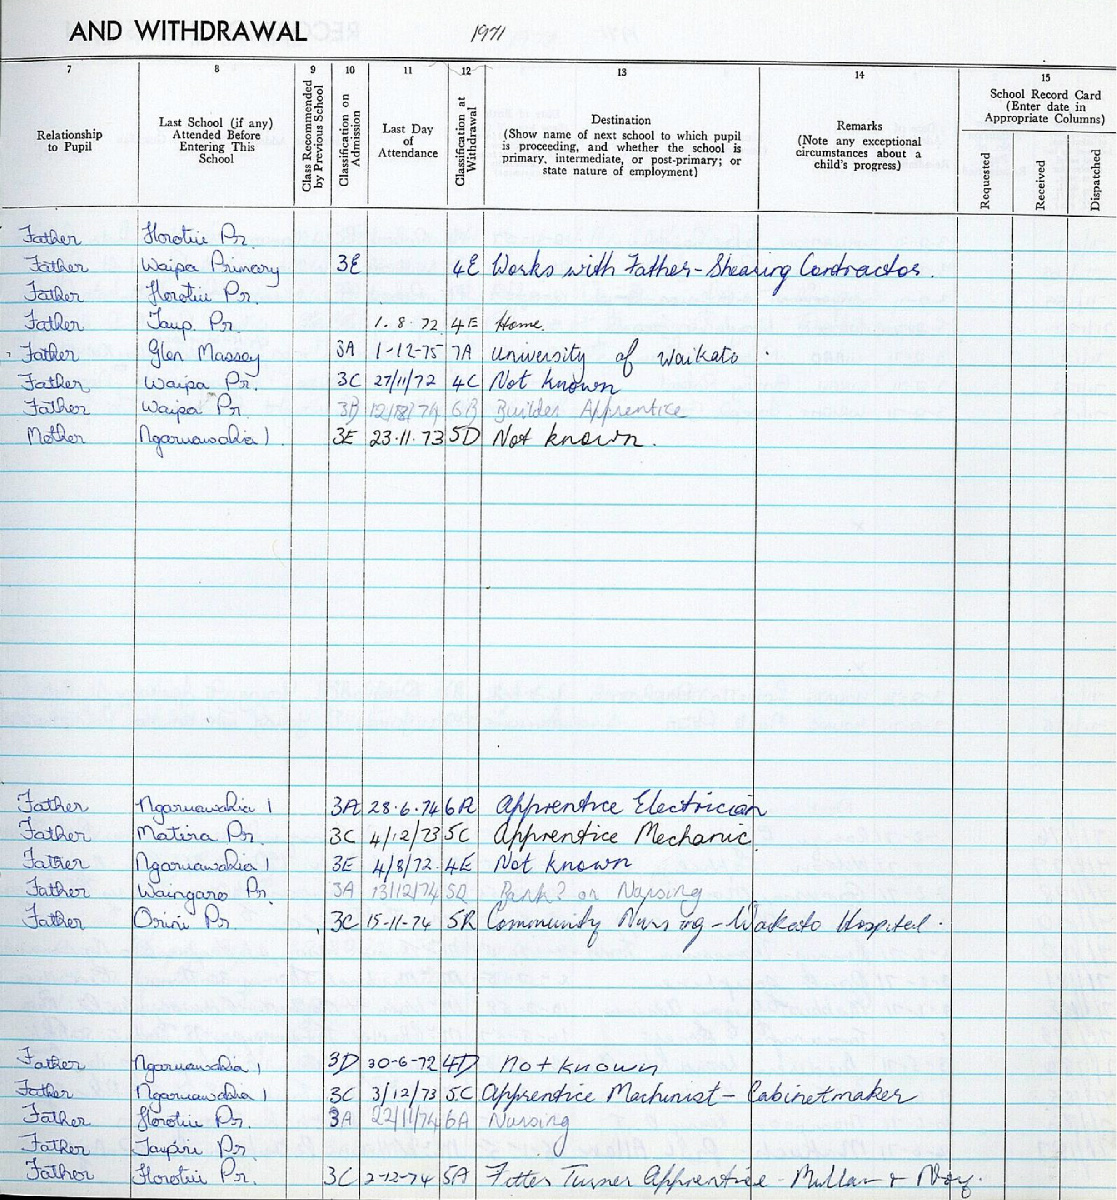 AND WITHDRAWAL 1971
7 8 9 10 11 12 13 14 15
Relationship to Pupil
Last School (if any) Attended Before Entering This School
Class Recommended by Previous School
Classification on Admission
Last Day of Attendance
Classification at Withdrawal
Destination
(Show name of next school to which pupil is proceeding, and whether the school is primary, intermediate, or post-primary; or state nature of employment)
Remarks
(Note any exceptional circumstances about a child's progress)
School Record Card
(Enter date in Appropriate Columns)
Requested
Received
Dispatched
Father Horotiu Pr.
Father Waipa Primary 3E 4E Works with Father - Shearing Contractor.
Father Horotiu Pr.
Father Taup. Pr. 1.8.72 4E Home.
Father Glen Massey 3A 1-12-75 7A University of Waikato
Father Waipa Pr. 3C 27/11/72 4C Not known
Father Waipa Pr. 3B 12/18/74 6B Builder Apprentice
Mother Ngaruawahia 1. 3E 23.11.73 5D Not known.
Father Ngaruawahia 1 3A 28.6.74 6R Apprentice Electrician
Father Matira Pr. 3C 4/12/73 5C Apprentice Mechanic.
Father Ngaruawahia 1 3E 4/8/72 4E Not known
Father Waingaro Pr. 3A 13/12/74 Bank? or Nursing
Father Orini Pr. 3C 15-11-74 5R Community Nursing - Waikato Hospital.
Father Ngaruawahia 1 3D 30-6-72 4D not known
Father Ngaruawahia 1 3C 3/12/73 5C Apprentice Machinist - Cabinetmaker
Father Horotiu Pr. 3A 22/11/74 6A Nursing
Father Taupiri Pr.
Father Horotiu Pr. 3C 2-12-74 5A Fitter Turner Apprentice -